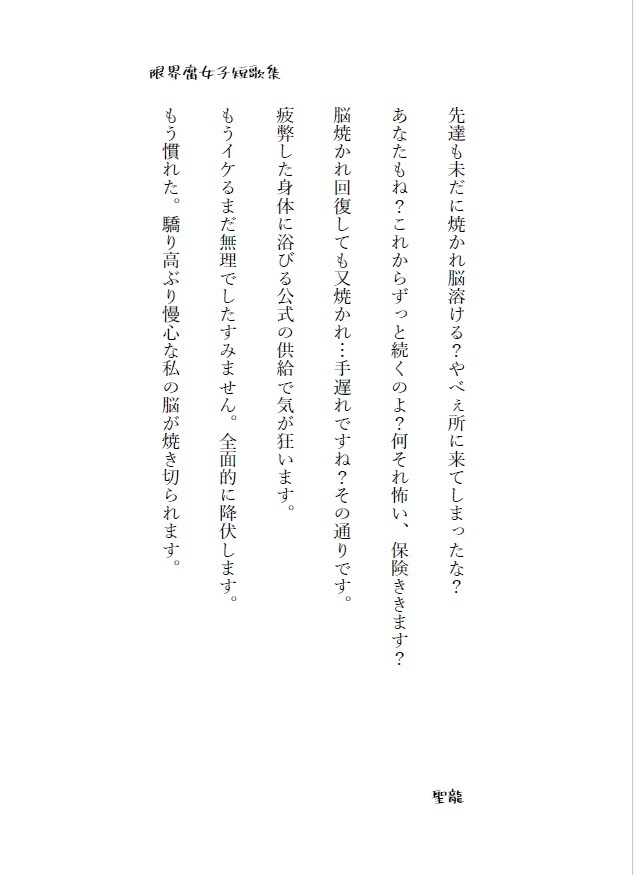 限界腐女子短歌集
先達も未だに焼かれ脳溶ける？やべぇ所に来てしまったな？
あなたもね？これからずっと続くのよ？何それ怖い、保険ききます？
脳焼かれ回復しても又焼かれ…手遅れですね？その通りです。
疲弊した身体に浴びる公式の供給で気が狂います。
もうイケるまだ無理でしたすみません。全面的に降伏します。
もう慣れた。驕り高ぶり慢心な私の脳が焼き切られます。
聖龍